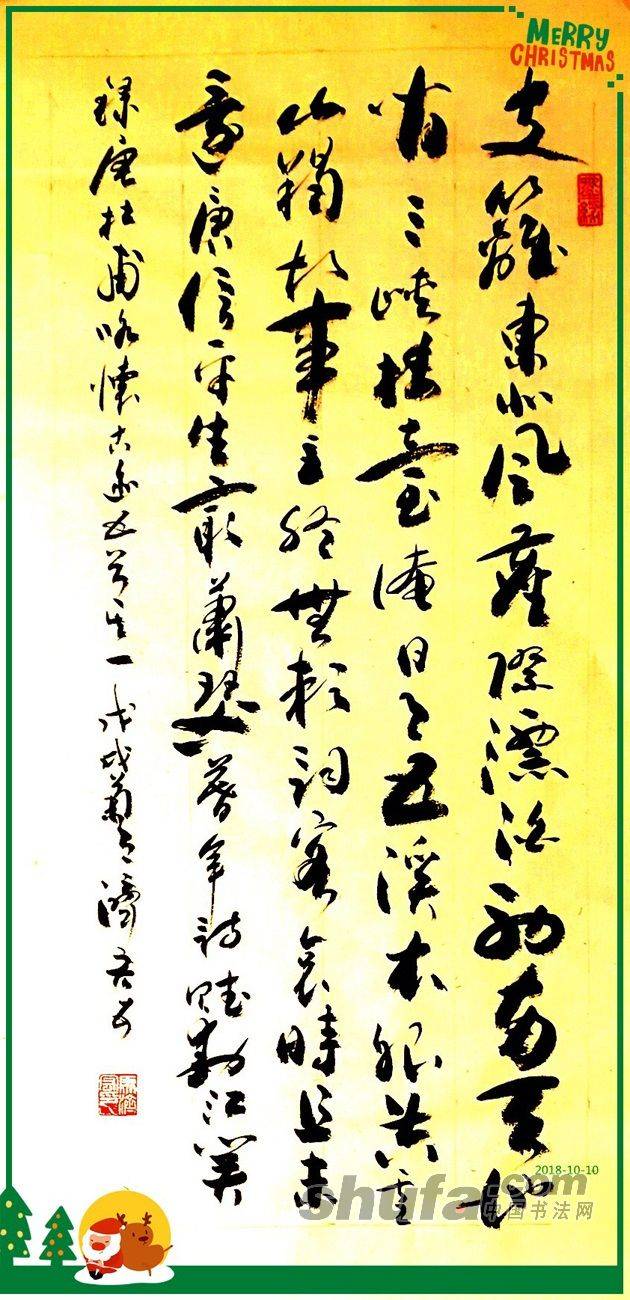 MERRY
CHRISTMAS
支籬東北風塵際漂泊西南天地
間三峽樓臺淹日月五溪衣服共雲
山羯胡事主終無賴詞客哀時且未
還庾信平生最蕭瑟暮年詩賦動江關
録唐杜甫咏懷古迹五首其一戊戌菊月濟
2018-10-10
shufa.com
中国书法网